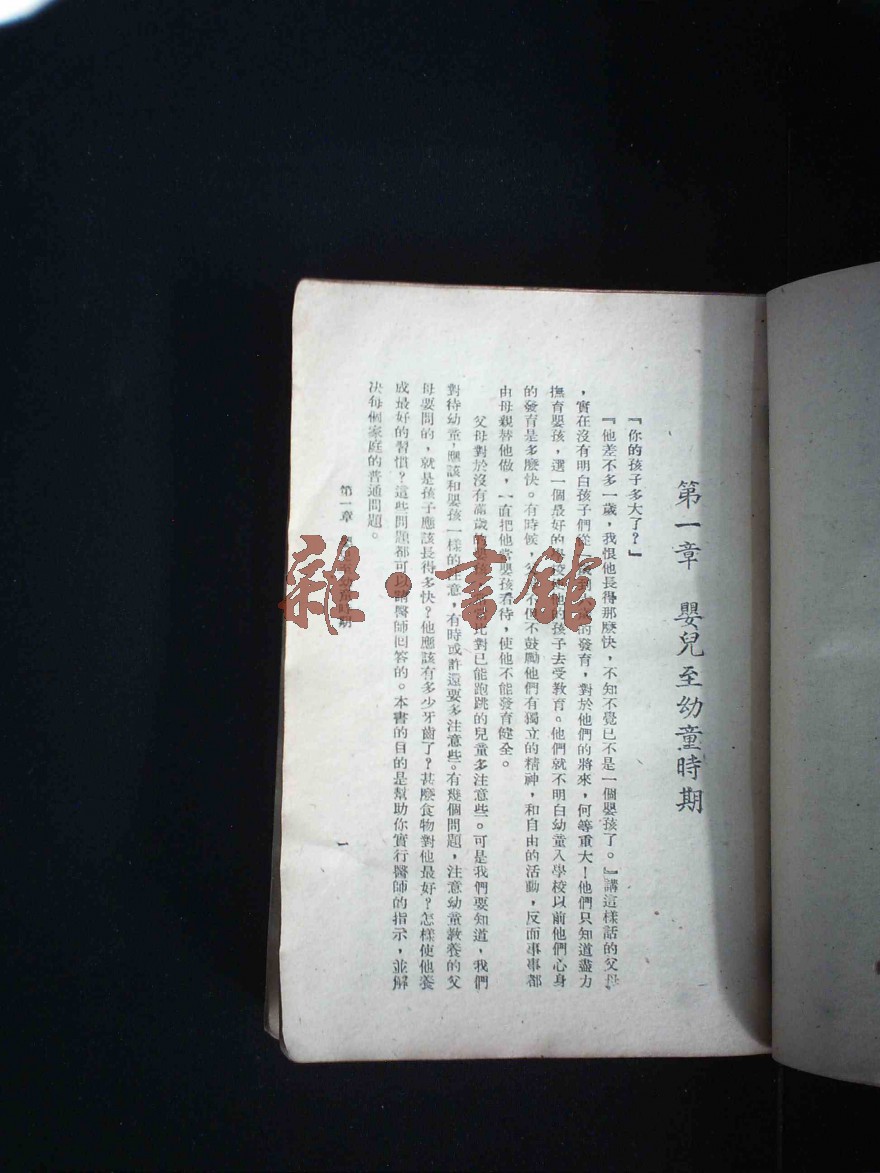 第一章 嬰兒至幼童時期
『你的孩子多大了？』
『他差不多一歲，我恨他長得那麼快，不知不覺已不是一個嬰孩了。』講這樣話的父母
，實在沒有明白孩子們從 的發育，對於他們的將來，何等重大！他們只知道盡力
撫育嬰孩，選一個最好的學校 他的孩子去受教育。他們就不明白幼童入學校以前他們心身
的發育是多麼快。有時候， 不但不鼓勵他們有獨立的精神，和自由的活動，反而事事都
由母親替他做，一直把他當嬰孩看待，使他不能發育健全。
父母對於沒有滿歲的 比對已能跑跳的兒童多注意些。可是我們要知道，我們
對待幼童，應該和嬰孩一樣的注意，有時或許還要多注意些。有幾個問題，注意幼童教養的父
母要問的，就是孩子應該長得多快？他應該有多少牙齒了？甚麼食物對他最好？怎樣使他養
成最好的習慣？這些問題都可以請醫師回答的。本書的目的是幫助你實行醫師的指示，並解
決每個家庭的普通問題。
第一章 幼童時期
一
雜·書館